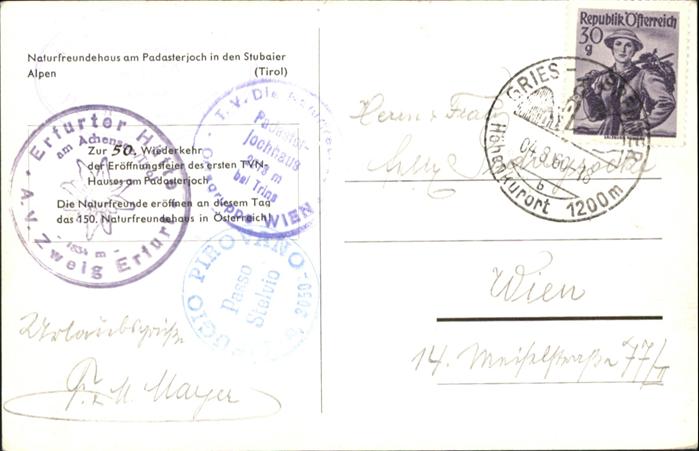 Naturfreundehaus am Padasterjoch in den Stubaier
Alpen (Tirol)
Republik Österreich
30
g
GRIES
Höhenkurort 1200m
b
Erfurter Hütte
am Achensee Tirol
1834 m
A.V. Zweig Erfurt
T.V. Die Naturfreunde
Padaster-
Jochhaus
bei Trins
WIEN
Zur 50. Wiederkehr
der Eröffnungsfeier des ersten TVN-
Hauses am Padasterjoch
Die Naturfreunde eröffnen an diesem Tag
das 150. Naturfreundehaus in Österreich!
PIROVANO
Passo
Stelvio
Herrn u Frau
Wien
14. Meiselstraße 77/II
Urlaubsgrüße
F. u. M. Mayer